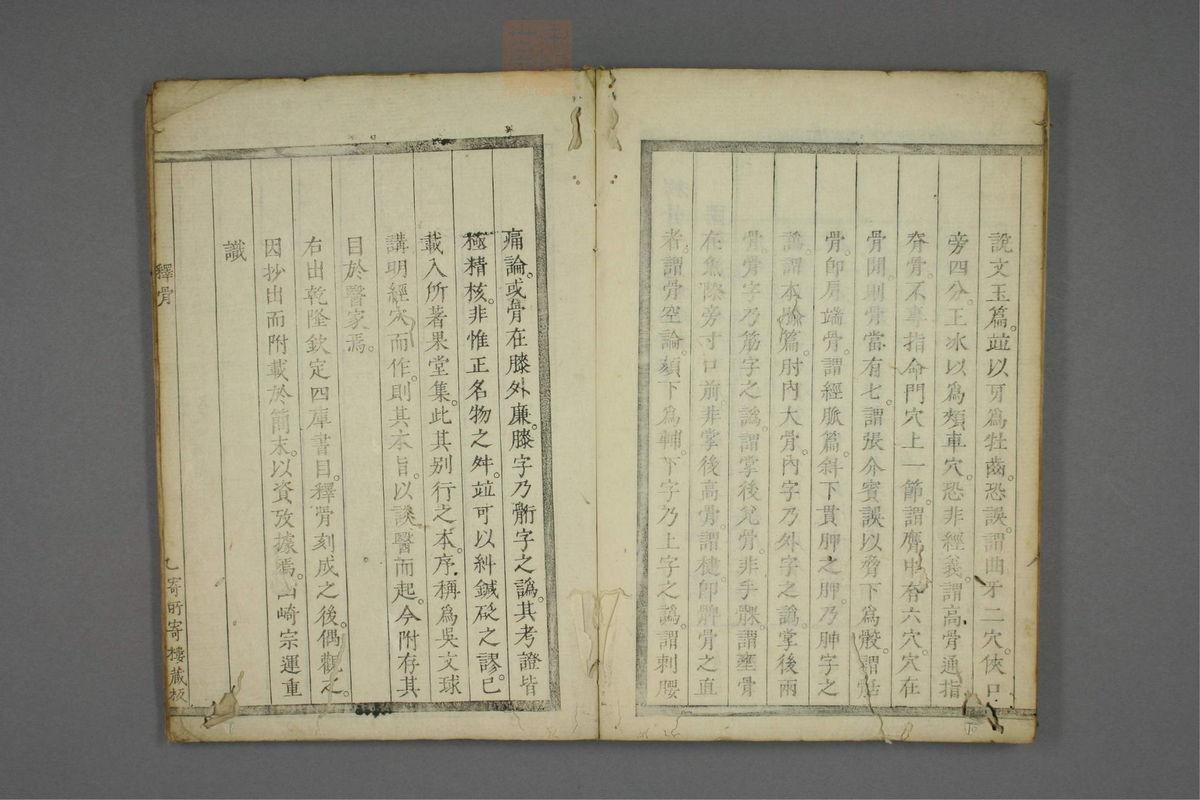 說文玉篇。竝以牙爲牡齒。恐誤。謂曲牙二穴。俠口
旁四分。王冰以爲頰車穴。恐非經義。謂高骨通指
脊骨。不專指命門穴上一節。謂齊中有六穴。穴在
骨間。則骨當有七。謂張介賓誤以脊下爲骰。謂䯏
骨。卽肩端骨。謂經脈篇。斜下貫胛之胛。乃胂字之
譌。謂本輸篇。肘內大骨。內字乃外字之譌。掌後兩
骨。骨字乃筋字之譌。謂掌後兌骨。非手髁。謂壅骨
在魚際旁寸口前。非掌後高骨。謂楗卽髀骨之直
者。謂骨空論。頦下爲輔。下字乃上字之譌。謂刺腰
痛論。或骨在膝外廉。膝字乃䯒字之譌。其考證皆
極精核。非惟正名物之舛。竝可以糾鍼砭之謬。已
載入所著果堂集。此其別行之本。序稱爲吳文球
講明經穴而作。則其本旨。以談醫而起。今附存其
目於醫家焉。
右出乾隆欽定四庫書目。釋骨刻成之後。偶觀之。
因抄出而附載於簡末。以資攷據焉。山崎宗運重
識
釋骨
寄所寄樓藏板